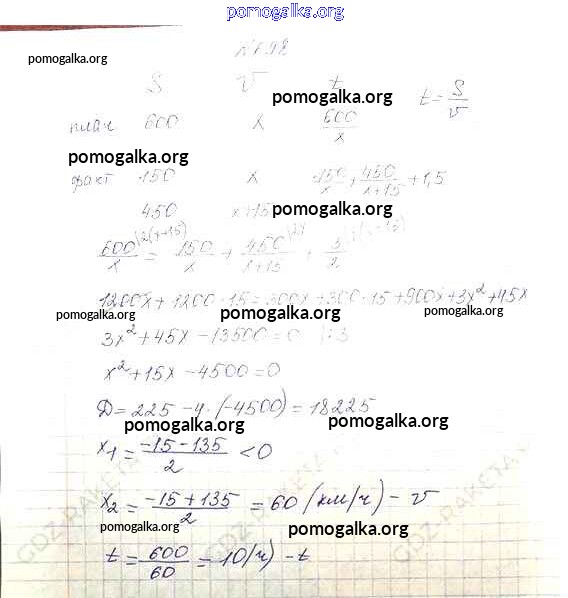 pomogalka.org
№798
pomogalka.org
S v t
pomogalka.org
t = S/v
план 600 x 600/x
pomogalka.org
факт 150 x 150/x + 450/(x+15) + 1,5
450 x+15
pomogalka.org
600/x |2(x+15) = 150/x + 450/(x+15) |2x + 3/2
1200x + 1200 · 15 = 300x + 300 · 15 + 900x + 3x² + 45x
pomogalka.org pomogalka.org pomogalka.org
3x² + 45x - 13500 = 0 |:3
x² + 15x - 4500 = 0
D = 225 - 4 · (-4500) = 18225
pomogalka.org pomogalka.org
x₁ = (-15-135)/2 < 0
x₂ = (-15+135)/2 = 60 (км/ч) - v
pomogalka.org
pomogalka.org
t = 600/60 = 10(ч) - t
pomogalka.org
GDZ-RAKETA
GDZ-RAKETA
GDZ-RAKETA